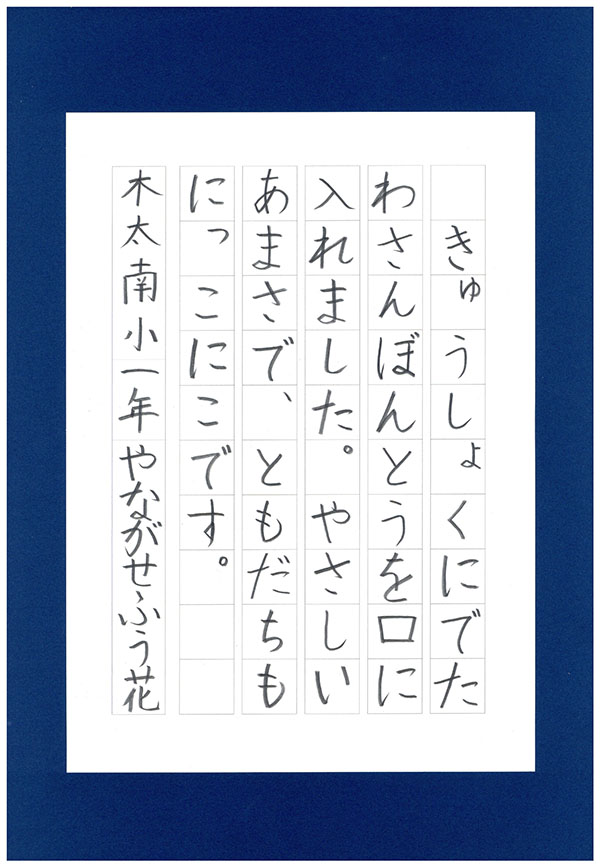 きゅうしょくにでた
わさんぼんとうを口に
入れました。やさしい
あまさで、ともだちも
にっこにこです。
木太南小一年やながせふう花